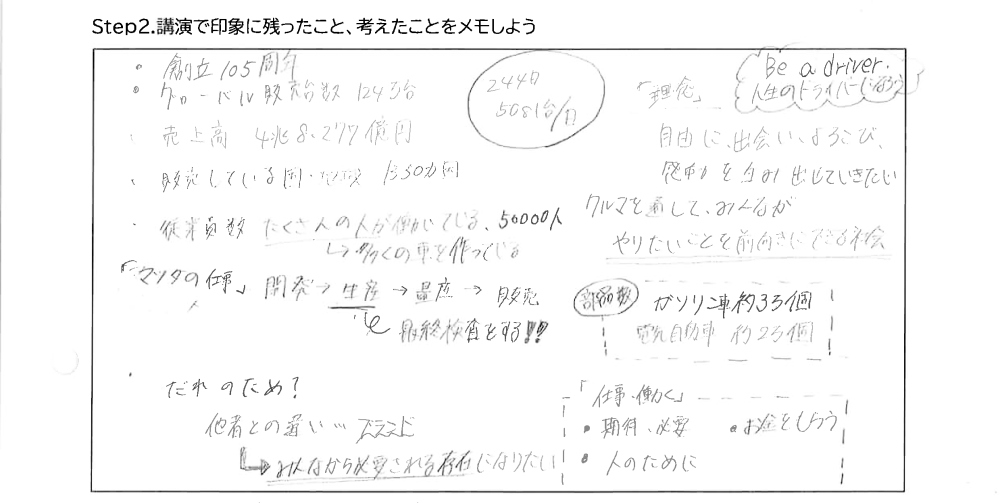 Step2.講演で印象に残ったこと、考えたことをメモしよう
・創立105周年
・グローバル販売台数 124万台
・売上高 4兆8,277億円
・販売している国・地域 130カ国
・従業員数 たくさ人の人が働いている、50000人
↳多くの車を作っている
244日
5081台/日
Be a driver.
人生のドライバーになろう
「理念」
自由に、出会い、よろこび、
感動を生み出していきたい
クルマを通して、みんなが
やりたいことを前向きにできる社会
「マツダの仕事」 開発→生産→量産→販売
最終検査をする!!
部品数 ガソリン車約3万個
電気自動車 約2万個
・だれのため?
他者との違い…ブランド
↳みんなから必要される存在になりたい
「仕事・働く」
・期待、必要 ・お金をもらう
・人のために